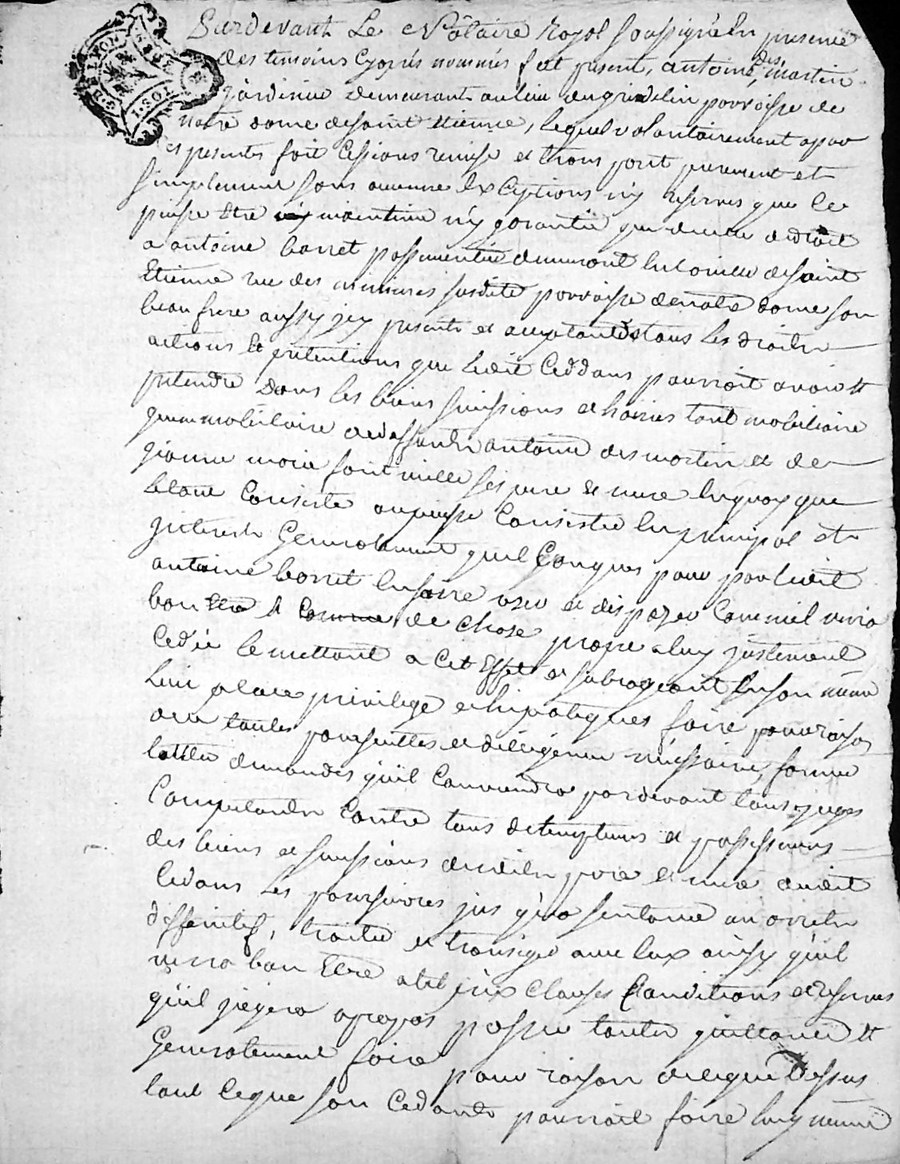 Pardevant Le Nôtaire royal soussigné En presence
des temoins Cy après nommés fut present, antoine desmartin
jardinier demeurant au lieu du gridelin parroisse de
notre dame de saint Etienne, lequel volontairement a par
ces presentes fait Cessions remise et trans port purement et
simplement sans aucunne Exceptions ny reserves que Ce
puisse Etre ny maintenue ny garantie que de ceu de droit
a antoine barret passementier demeurant En la ville de saint
Etienne rue des minimes susdite parroisse de notre dame son
beau frere aussy jcy present et acceptant de tous Les droits
actions Et pretentions que Ledit Ceddant pourroit avoir Et
pretendre dans les biens successions et hoiries tant mobiliaire
qu'immobiliaire de deffunts antoine des martin et de
jeanne marie fontvielle ses pere et mere En quoy que
le tout Consiste ou puisse Consister En principal et
jnterest Generalement quel Conques pour par Ledit
antoine barret En faire user et dispozer Comme il verra
bon Etre de chose propre a luy justement
Cedée le mettant a Cet Effet et subrogeant En son meme
Lieu place privilege et hipoteques faire pour raison
de ce toutes poursuittes et diligence necessaire, former
toutes demandes qu'il Conviendra pardevant tous juges
Competants Contre tous detempteurs et possesseurs
des biens et successions desdits pere et mere dudit
Cedant Les poursuivre jus qu'a sentence ou arrets
deffinitif, traiter et transiger avec Eux ainsy qu'il
verra bon Etre a tel prix clauses Conditions et reserves
qu'il jugera apropos passer toutes quittances Et
Generalement faire pour raison de ce que dessus
tout Ce que son Cedant pourroit faire luy meme